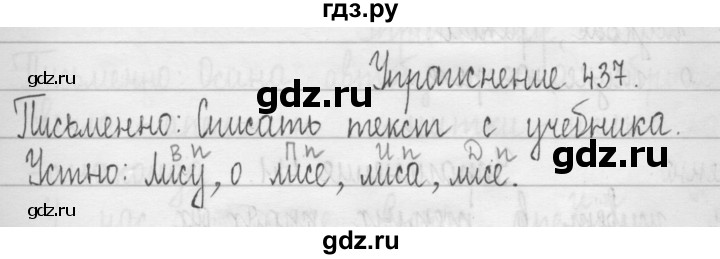 гдз.ру
Упражнение 437.
gdz.ru
gdz.ru
Письменно: Списать текст с учебника.
В п П п И п Д п
Устно: лису, о лисе, лиса, лисе.
gdz.ru
gdz.ru
gdz.ru